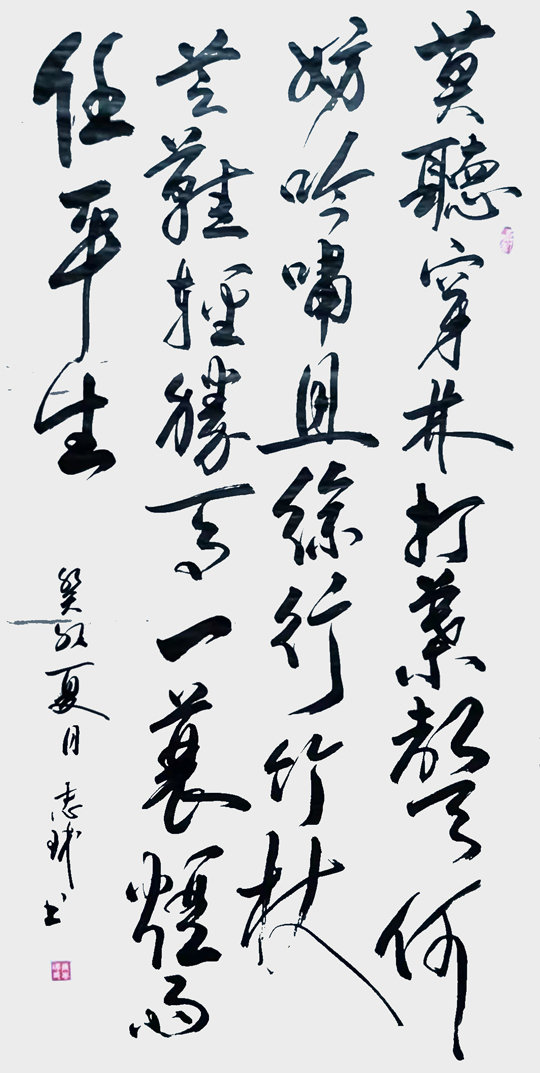 莫聽穿林打葉聲何
妨吟嘯且徐行竹杖
芒鞵輕勝馬一蓑煙雨
任平生
癸卯夏月 志球书